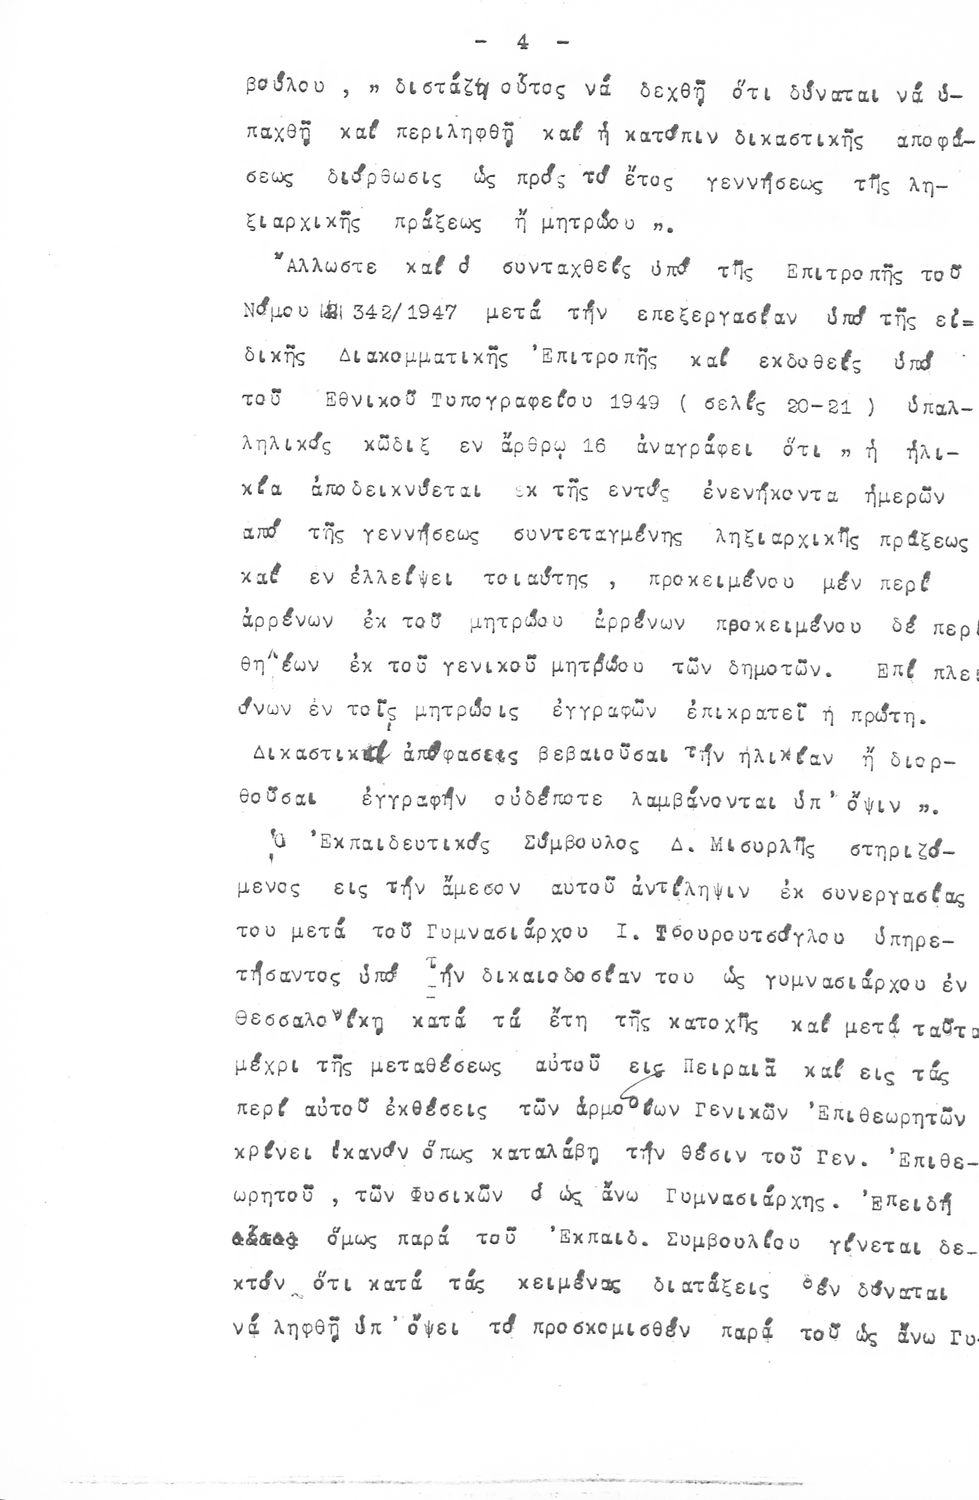 - 4 -
βούλου , „ διστάζῃ οὗτος νά δεχθῇ ὅτι δύναται νά ὑ-
παχθῇ καί περιληφθῇ καί ἡ κατόπιν δικαστικῆς αποφά-
σεως διόρθωσις ὡς πρός τό ἔτος γεννήσεως τῆς λη-
ξιαρχικῆς πράξεως ἤ μητρώου „.
Ἄλλωστε καί ὁ συνταχθείς ὑπό τῆς Επιτροπῆς τοῦ
Νόμου 342/1947 μετά τήν επεξεργασίαν ὑπό τῆς εἰ=
δικῆς Διακομματικῆς Ἐπιτροπῆς καί εκδοθείς ὑπό
τοῦ Εθνικοῦ Τυπογραφείου 1949 ( σελίς 20-21 ) ὑπαλ-
ληλικός κῶδιξ εν ἄρθρῳ 16 ἀναγράφει ὅτι „ ἡ ἡλι-
κία ἀποδεικνύεται εκ τῆς εντός ἐνενήκοντα ἡμερῶν
από τῆς γεννήσεως συντεταγμένης ληξιαρχικῆς πράξεως
καί εν ἐλλείψει τοιαύτης , προκειμένου μέν περί
ἀρρένων ἐκ τοῦ μητρώου ἀρρένων προκειμένου δέ περί
θηλέων ἐκ τοῦ γενικοῦ μητρώου τῶν δημοτῶν. Επί πλει
όνων ἐν τοῖς μητρώοις ἐγγραφῶν ἐπικρατεῖ ἡ πρώτη.
Δικαστικαί ἀπόφασεις βεβαιοῦσαι τήν ἡλικίαν ἤ διορ-
θοῦσαι ἐγγραφήν οὐδέποτε λαμβάνονται ὑπ' ὄψιν „.
Ὁ Ἐκπαιδευτικός Σύμβουλος Δ. Μισυρλῆς στηριζό-
μενος εις τήν ἄμεσον αυτοῦ ἀντίληψιν ἐκ συνεργασίας
του μετά τοῦ Γυμνασιάρχου Ι. Τσουρουτσόγλου ὑπηρε-
τήσαντος ὑπό τήν δικαιοδοσίαν του ὡς γυμνασιάρχου ἐν
Θεσσαλονίκῃ κατά τά ἔτη τῆς κατοχῆς καί μετά ταῦτα
μέχρι τῆς μεταθέσεως αὐτοῦ εις Πειραιᾶ καί εις τάς
περί αὐτοῦ ἐκθέσεις τῶν ἁρμοδίων Γενικῶν Ἐπιθεωρητῶν
κρίνει ἱκανόν ὅπως καταλάβῃ τήν θέσιν τοῦ Γεν. Ἐπιθε-
ωρητοῦ , τῶν Φυσικῶν ὁ ὡς ἄνω Γυμνασιάρχης. Ἐπειδή
ὅμως παρά τοῦ Ἐκπαιδ. Συμβουλίου γίνεται δε-
κτόν ὅτι κατά τάς κειμένας διατάξεις δέν δύναται
νά ληφθῇ ὑπ' ὄψει τό προσκομισθέν παρά τοῦ ὡς ἄνω Γυ-